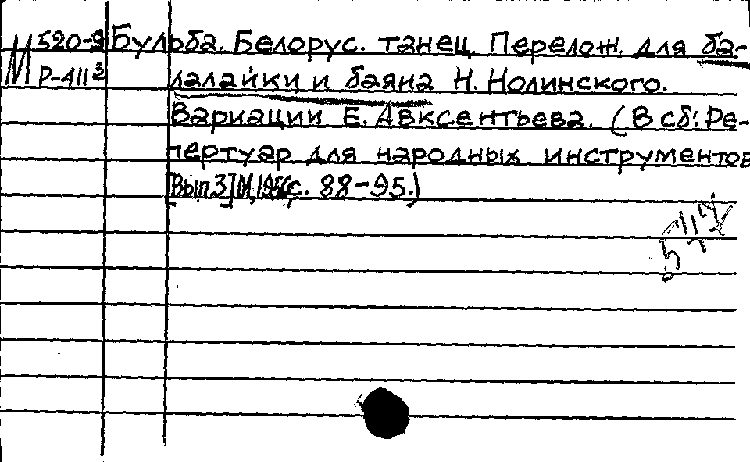 М 520-2 Бульба. Белорус. танец. Перелож. для ба-
Р-411³ лалайки и баяна Н. Нолинского.
Вариации Е. Авксентьева. (В сб: Ре-
пертуар для народных инструментов
[Вып.3] М, 1956, с. 88-95.)